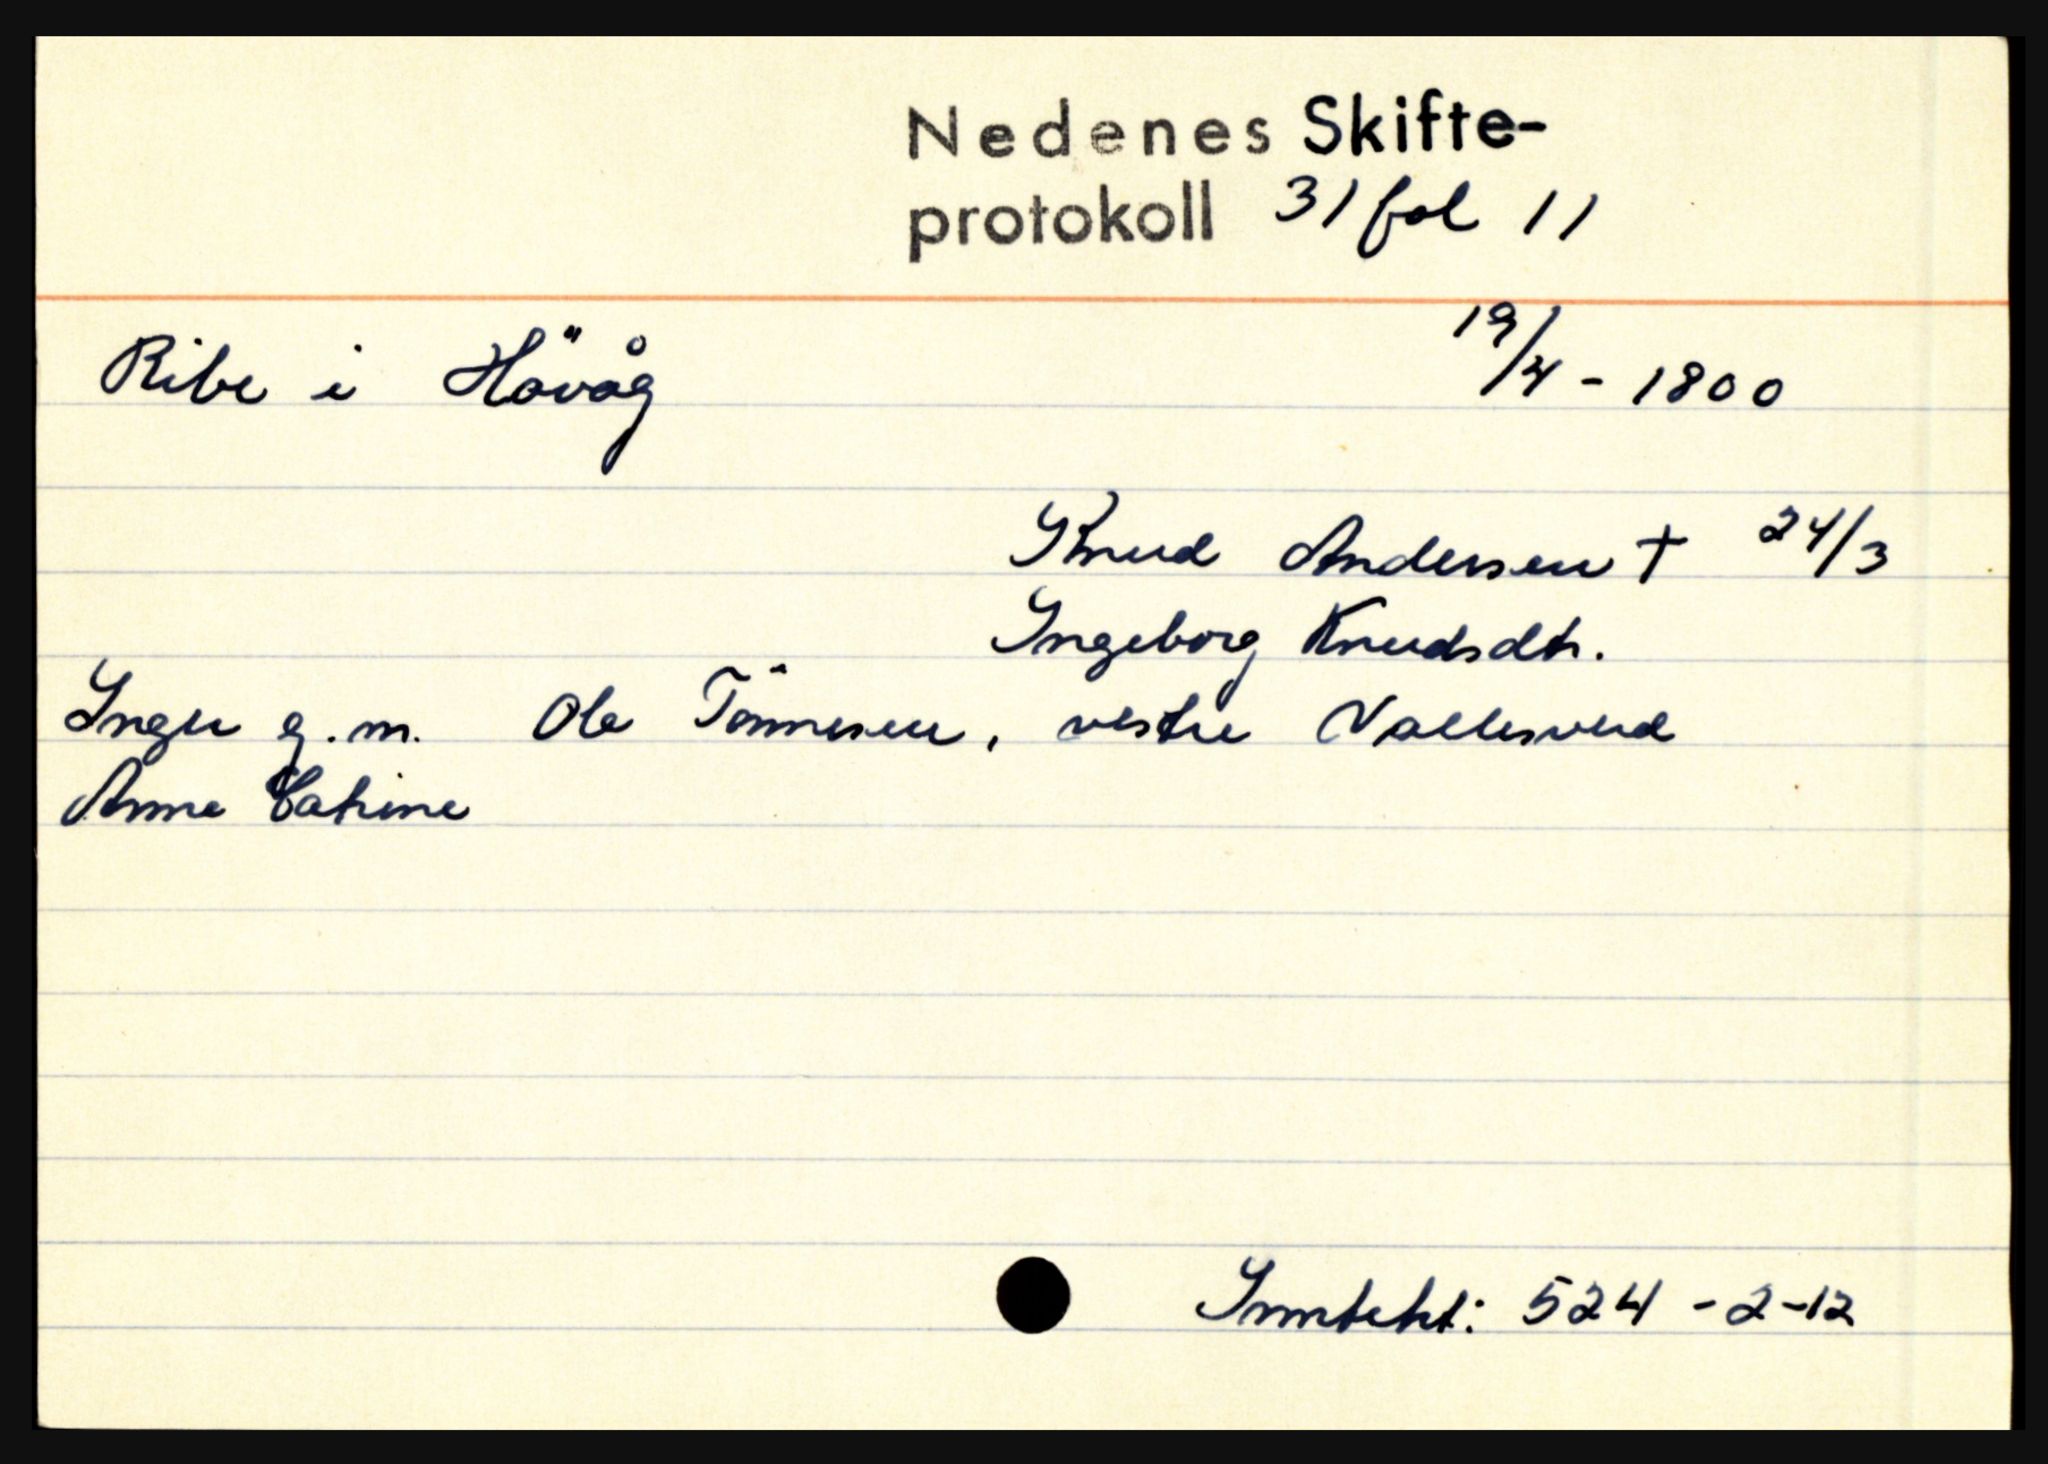 Nedenes Skifte-
protokoll 31 fol 11
Ribe i Hövåg 19/4 - 1800
Knud Andersen † 24/3
Ingeborg Knudsdtr.
Inger g.m. Ole Tönnesen, vestre Vallesverd
Anne Catrine
Inntekt: 524 - 2-12